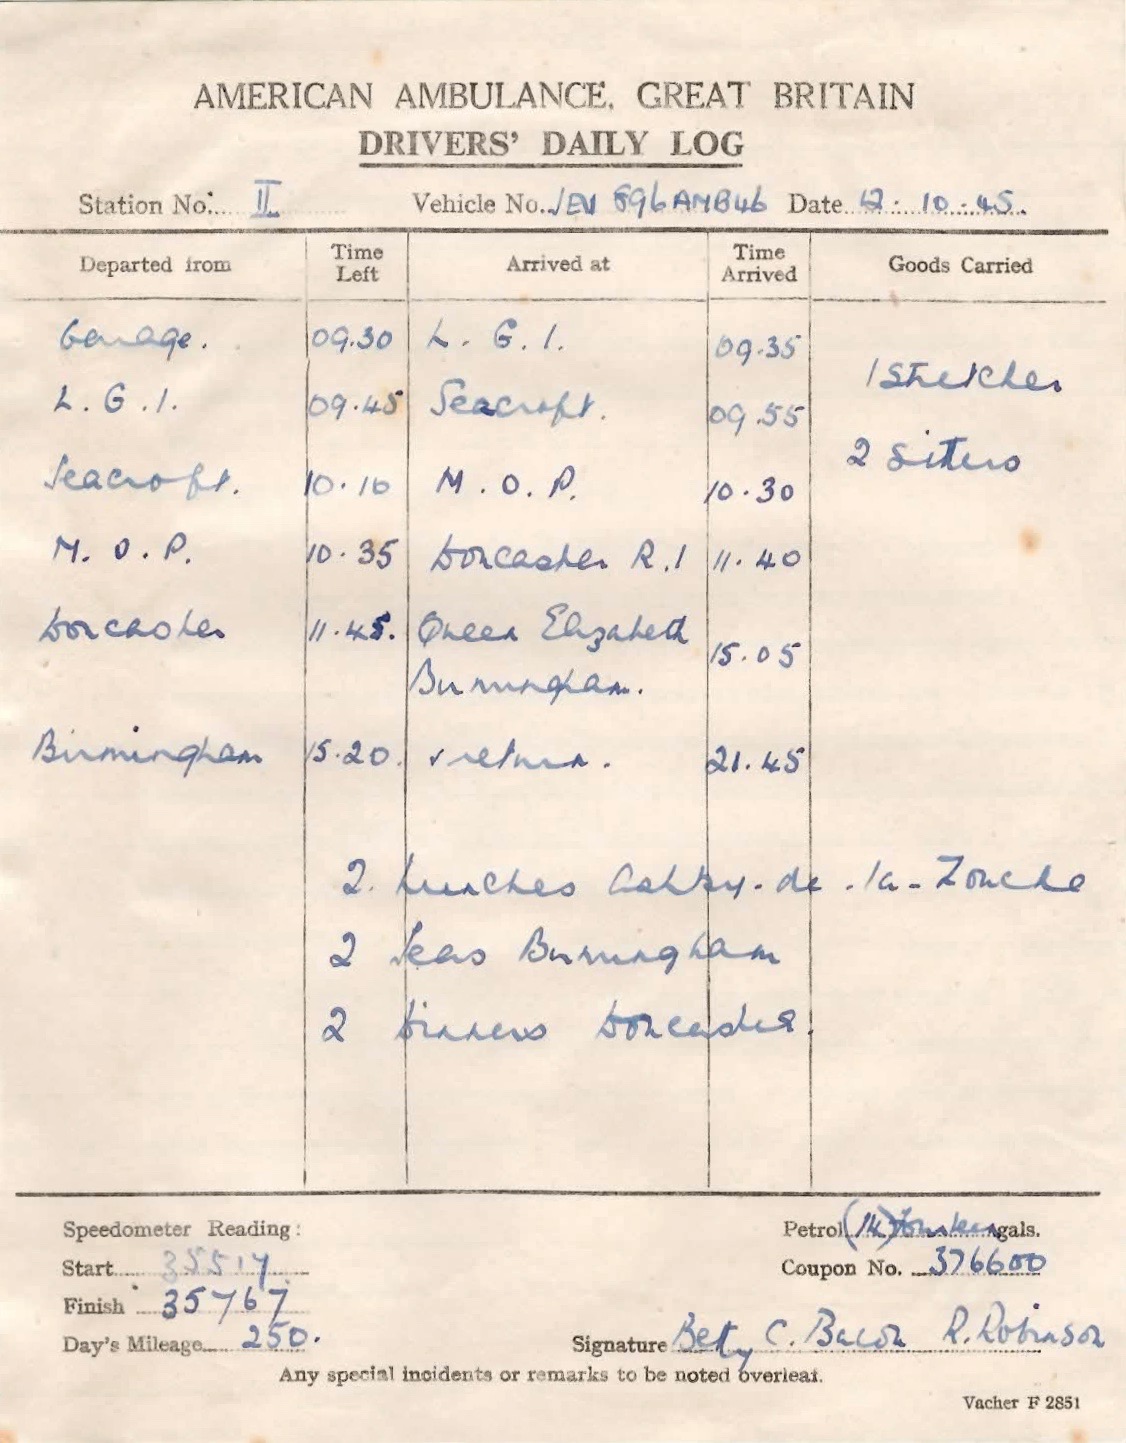 AMERICAN AMBULANCE, GREAT BRITAIN
DRIVERS' DAILY LOG
Station No. II Vehicle No. JEV 896 AMB46 Date 12.10.45.
Departed from Time Left Arrived at Time Arrived Goods Carried
Garage. 09.30 L.G.I. 09.35
1 Stretcher
L.G.I. 09.45 Seacroft. 09.55
2 Sitters
Seacroft. 10.10 M.O.P. 10.30
M.O.P. 10.35 Doncaster R.I 11.40
Doncaster 11.45. Queen Elizabeth
Birmingham. 15.05
Birmingham 15.20. return. 21.45
2. Lunches Ashby-de-la-Zouche
2 Teas Birmingham
2 Dinners Doncaster.
Speedometer Reading: Petrol (14) fourteen gals.
Start 35517. Coupon No. 376600
Finish 35767
Day's Mileage 250. Signature Betty C. Bacon R. Robinson
Any special incidents or remarks to be noted overleaf.
Vacher F 2851